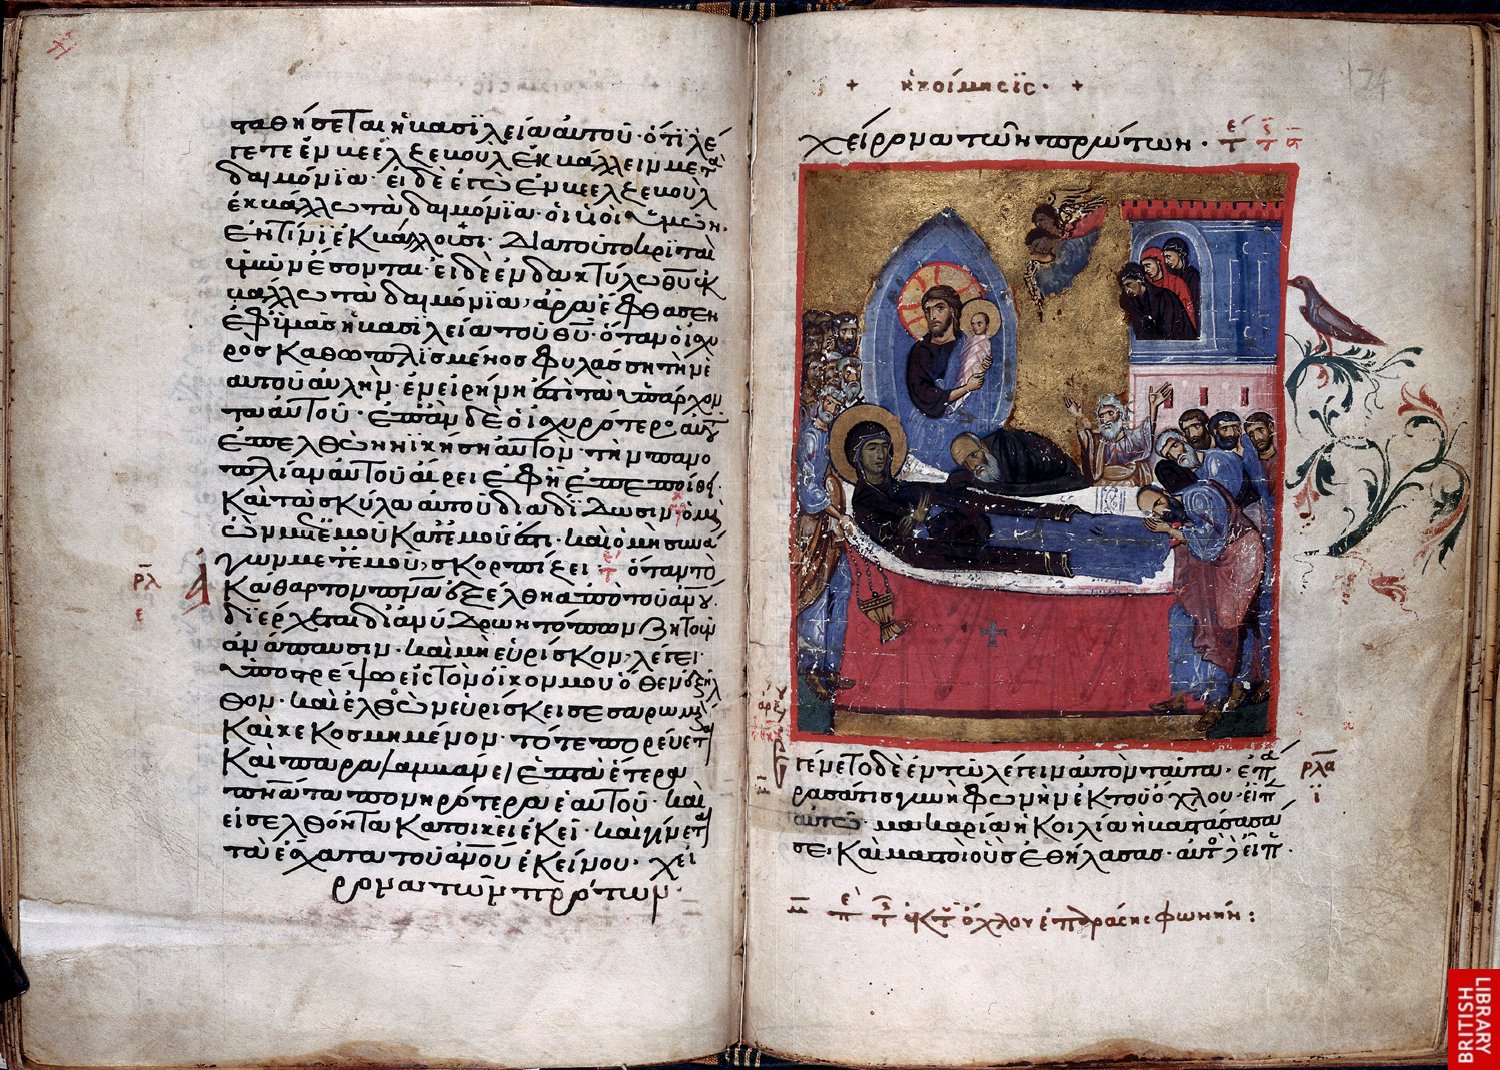 ταθήσεται ἡ βασιλεία αὐτοῦ· ὅτι λέ
γετε ἐν βεελζεβοὺλ ἐκβάλλειν με τὰ
δαιμόνια· εἰ δὲ ἐγὼ ἐν βεελζεβοὺλ
ἐκβάλλω τὰ δαιμόνια· οἱ υἱοὶ ὑμῶν·
ἐν τίνι ἐκβάλλουσι· διατοῦτο κριταὶ
ὑμῶν ἔσονται· εἰ δὲ ἐν δακτύλω θ̅υ̅ ἐκ
βάλλω τὰ δαιμόνια, ἄρα ἔφθασεν
ἐφ' ὑμᾶς ἡ βασιλεία τοῦ θ̅υ̅· ὅταν ὁ ἰσχυ
ρὸς καθωπλισμένος φυλάσση τὴν ἑ
αυτοῦ αὐλήν· ἐν εἰρήνη ἐστὶ τὰ ὑπάρχον
τα αὐτοῦ· ἐπὰν δὲ ὁ ἰσχυρότερος αὐτοῦ
ἐπελθὼν νικήση αὐτόν· τὴν πανο
πλίαν αὐτοῦ αἴρει ἐφ' ἧ ἐπεποίθει·
καὶ τὰ σκῦλα αὐτοῦ διαδίδωσιν· ὁ μὴ
ὢν μετ' ἐμοῦ κατ' ἐμοῦ ἐστι· καὶ ὁ μὴ συνά
γων μετ' ἐμοῦ, σκορπίζει· ὅταν τὸ
ρλ ἀκάθαρτον π̅ν̅α̅ ἐξέλθη ἀπὸ τοῦ α̅ν̅ο̅υ̅·
ε διέρχεται δι' ἀνύδρων τόπων ζητοῦν
ἀνάπαυσιν· καὶ μὴ εὑρίσκον, λέγει·
ὑποστρέψω εἰς τὸν οἶκον μου ὅθεν ἐξῆλ
θον· καὶ ἐλθὸν εὑρίσκει σεσαρωμένον
καὶ κεκοσμημένον· τότε πορεύεται
καὶ παραλαμβάνει ἑπτὰ ἕτερα
π̅ν̅α̅τα πονηρότερα ἑαυτοῦ· καὶ
εἰσελθόντα κατοικεῖ ἐκεῖ· καὶ γίνεται
τὰ ἔσχατα τοῦ α̅ν̅ο̅υ̅ ἐκείνου· χεί
ρονα τῶν πρώτων·
+ ἡ κοίμησις· +
124
χείρονα τῶν πρώτων·
γένετο δὲ ἐν τῶ λέγειν αὐτὸν ταῦτα· ἐπά ρλα
ρασά τις γυνὴ φωνὴν ἐκ τοῦ ὄχλου· εἶπεν ι
αὐτῶ· μακαρία ἡ κοιλία ἡ βαστάσασά
σε, καὶ μαστοὶ οὓς ἐθήλασας· αὐτὸς δὲ εἶπεν·
ἐκ τοῦ ὄχλου ἐπάρασης φωνὴν:
BRITISH LIBRARY